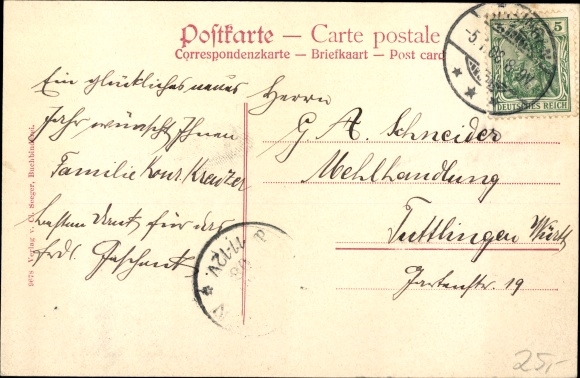 Postkarte — Carte postale
Correspondenzkarte — Briefkaart — Post card
5
DEUTSCHES REICH
Ein glückliches neues
Jahr wünscht Ihnen
Familie Konr. Kreuzer
besten Dank für das
Geschenk
Herrn
G. A. Schneider
Mehlhandlung
Tuttlingen Württ
Gartenstr. 19
11-12V.
9678 Verlag v. Ch. Seeger, Buchbinderei.
25,-